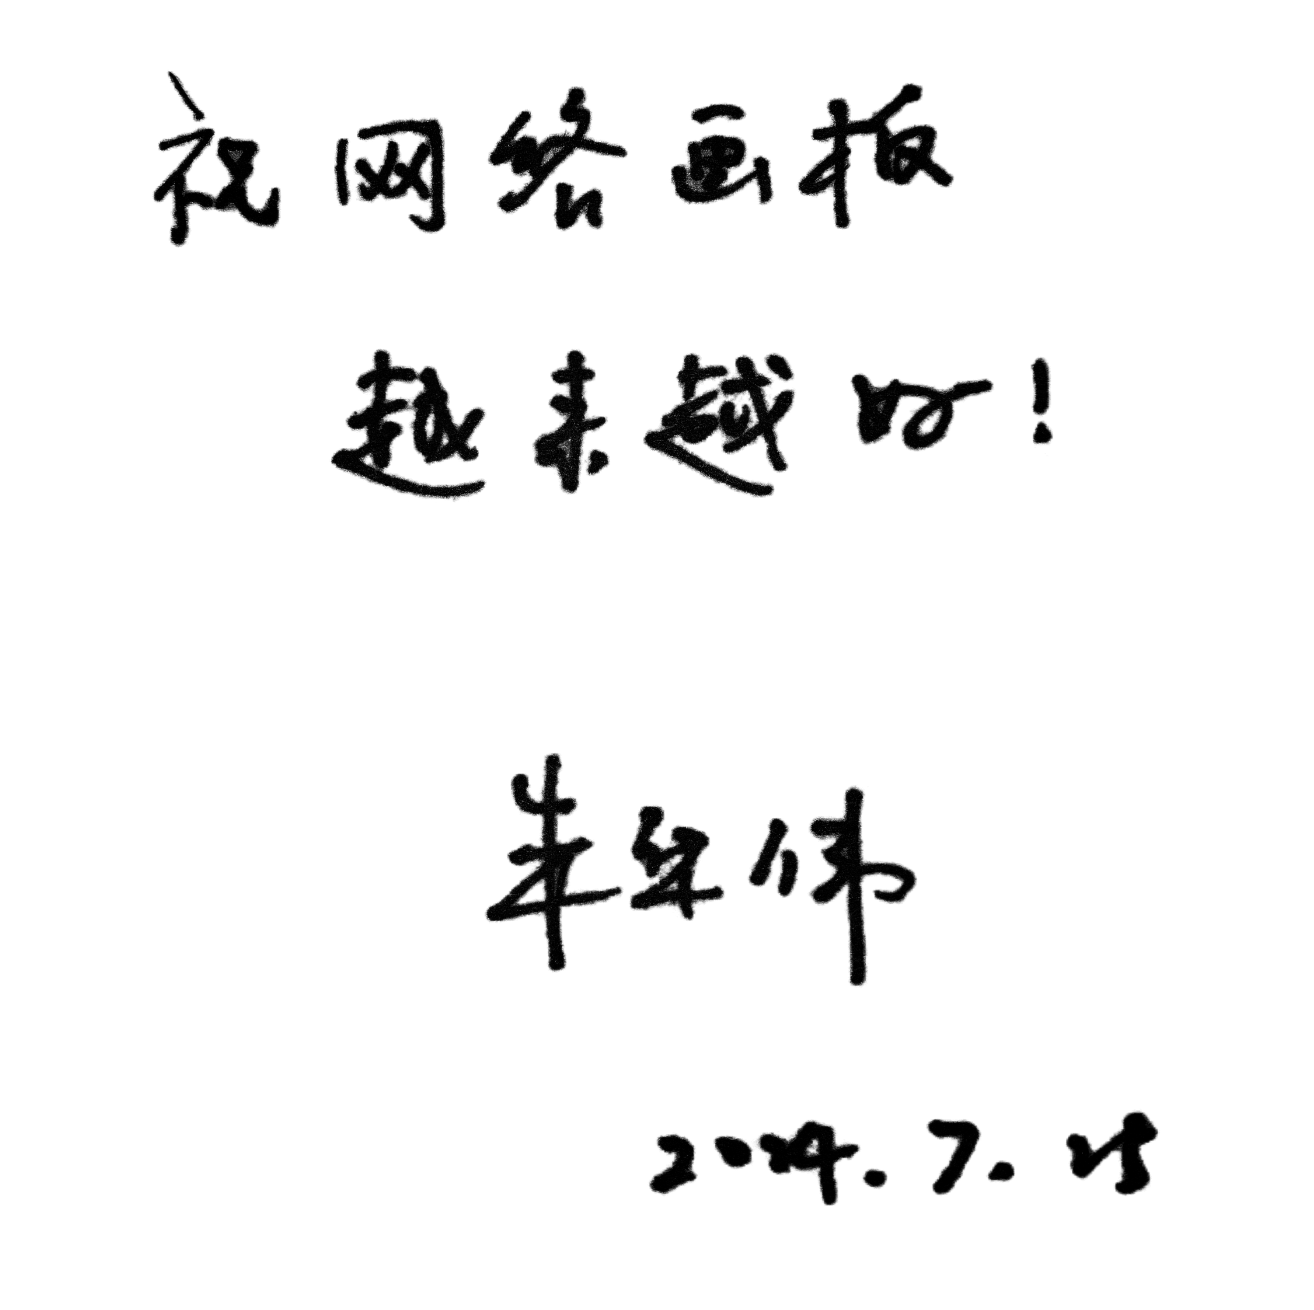 祝网络画板
越来越好!
朱华伟
2024.7.25